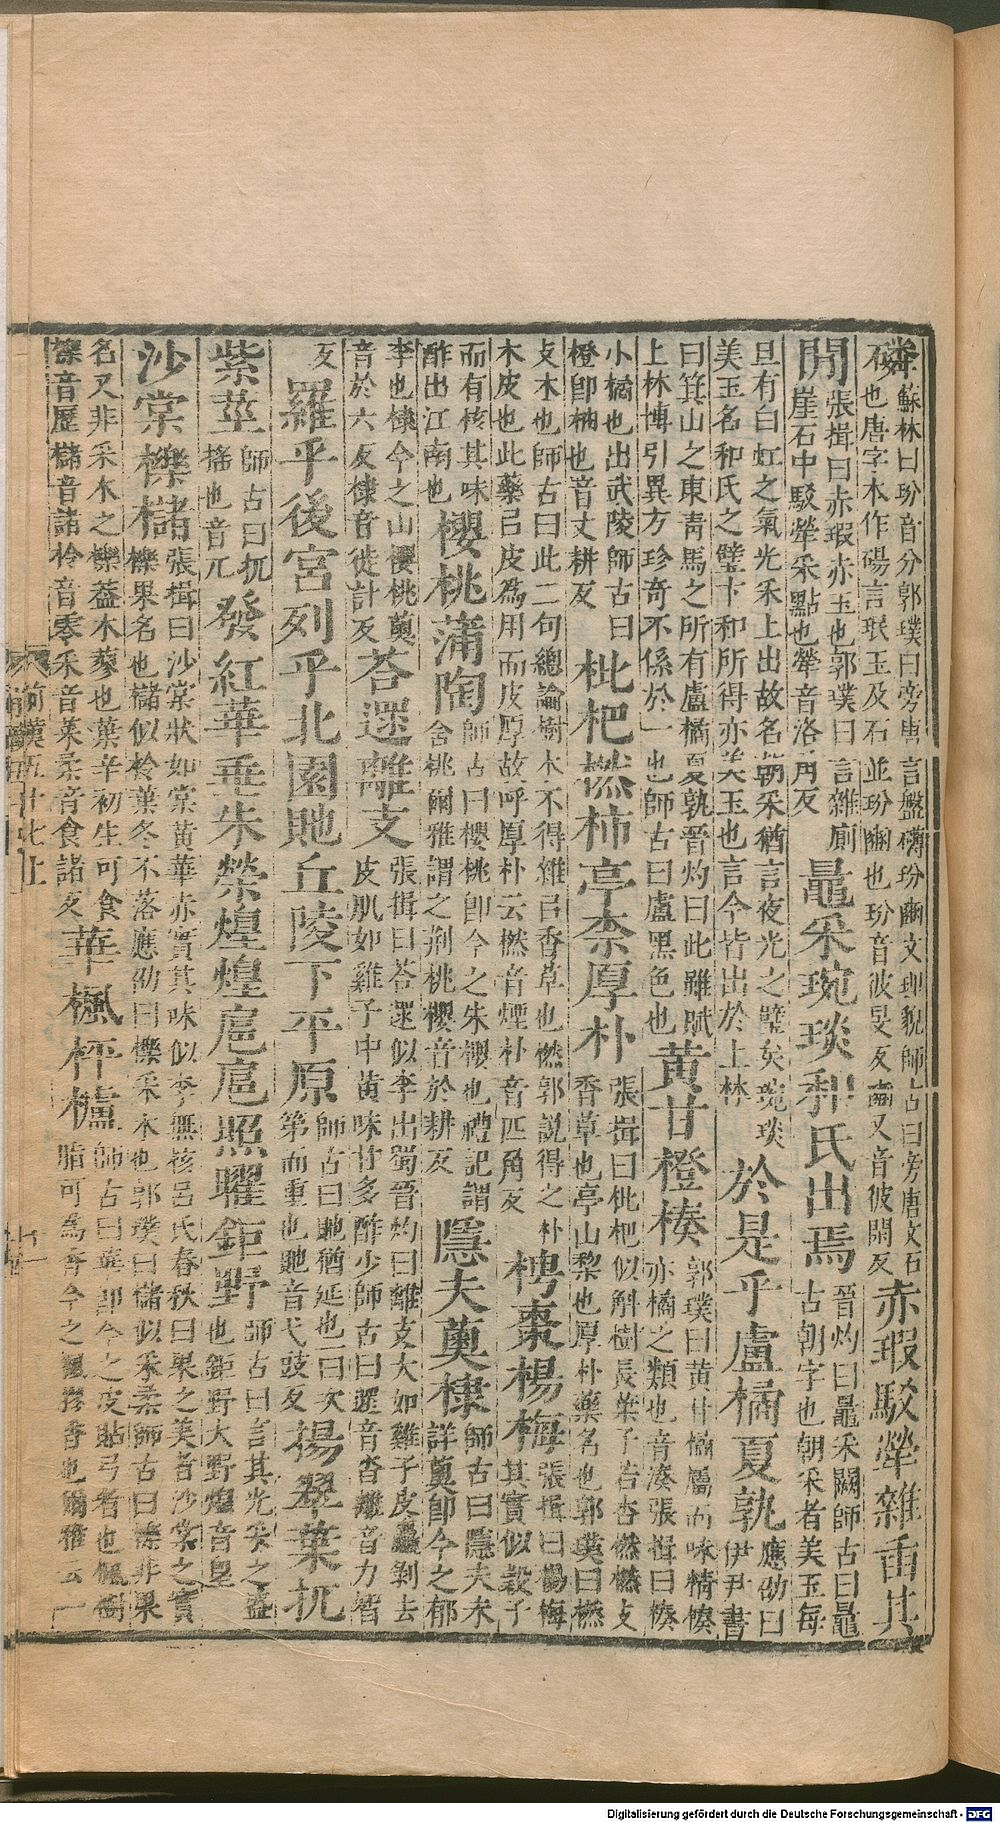 磷蘇林曰玢音分郭璞曰旁唐言盤礴玢豳文理貌師古曰旁唐文石也唐字本作碭言珉玉及石並玢豳也玢音彼旻反豳又音彼閑反赤瑕駮犖雜臿其
間張揖曰赤瑕赤玉也郭璞曰言雜廁崖石中駮犖采點也犖音洛角反鼂采琬琰和氏出焉晉灼曰鼂采闕師古曰鼂古朝字也朝采者美玉每
旦有白虹之氣光采上出故名朝采猶言夜光之璧矣琬琰美玉名和氏之璧卞和所得亦美玉也言今皆出於上林於是乎盧橘夏孰應劭曰伊尹書
曰箕山之東青馬之所有盧橘夏孰晉灼曰此雖賦上林博引異方珍奇不係於一也師古曰盧黑色也黃甘橙楱郭璞曰黃甘橘屬而味精楱亦橘之類也音湊張揖曰楱
小橘也出武陵師古曰橙卽柚也音丈耕反枇杷橪柿亭柰厚朴張揖曰枇杷似斛樹長葉子若杏橪橪支香草也亭山梨也厚朴藥名也郭璞曰橪
支木也師古曰此二句總論樹木不得雜以香草也橪郭說得之朴木皮也此藥以皮為用而皮厚故呼厚朴云橪音煙朴音匹角反梬棗楊梅張揖曰楊梅其實似榖子
而有核其味酢出江南也櫻桃蒲陶師古曰櫻桃卽今之朱櫻也禮記謂之含桃爾雅謂之荆桃櫻音於耕反隱夫薁棣師古曰隱夫未詳薁卽今之郁
李也棣今之山櫻桃薁音於六反棣音徒計反荅遝離支張揖曰荅遝似李出蜀晉灼曰離支大如雞子皮麤剝去皮肌如雞子中黃味甘多酢少師古曰遝音沓離音力智
反羅乎後宮列乎北園貤丘陵下平原師古曰貤猶延也曰次第而重也貤音弋豉反揚翠葉扤
紫莖師古曰扤搖也音兀發紅華垂朱榮煌煌扈扈照曜鉅野師古曰言其光采之盛也鉅野大野煌音皇
沙棠櫟櫧張揖曰沙棠狀如棠黃華赤實其味似李無核呂氏春秋曰果之美者沙棠之實櫟果名也櫧似柃葉冬不落應劭曰櫟采木也郭璞曰櫧似采柔師古曰櫟非果
名又非采木之櫟蓋木蓼也葉辛初生可食櫟音歷櫧音諸柃音零采音菜柔音食諸反華楓枰櫨師古曰華卽今之皮貼弓者也楓樹脂可為香今之楓膠香也爾雅云一
前漢五十七上